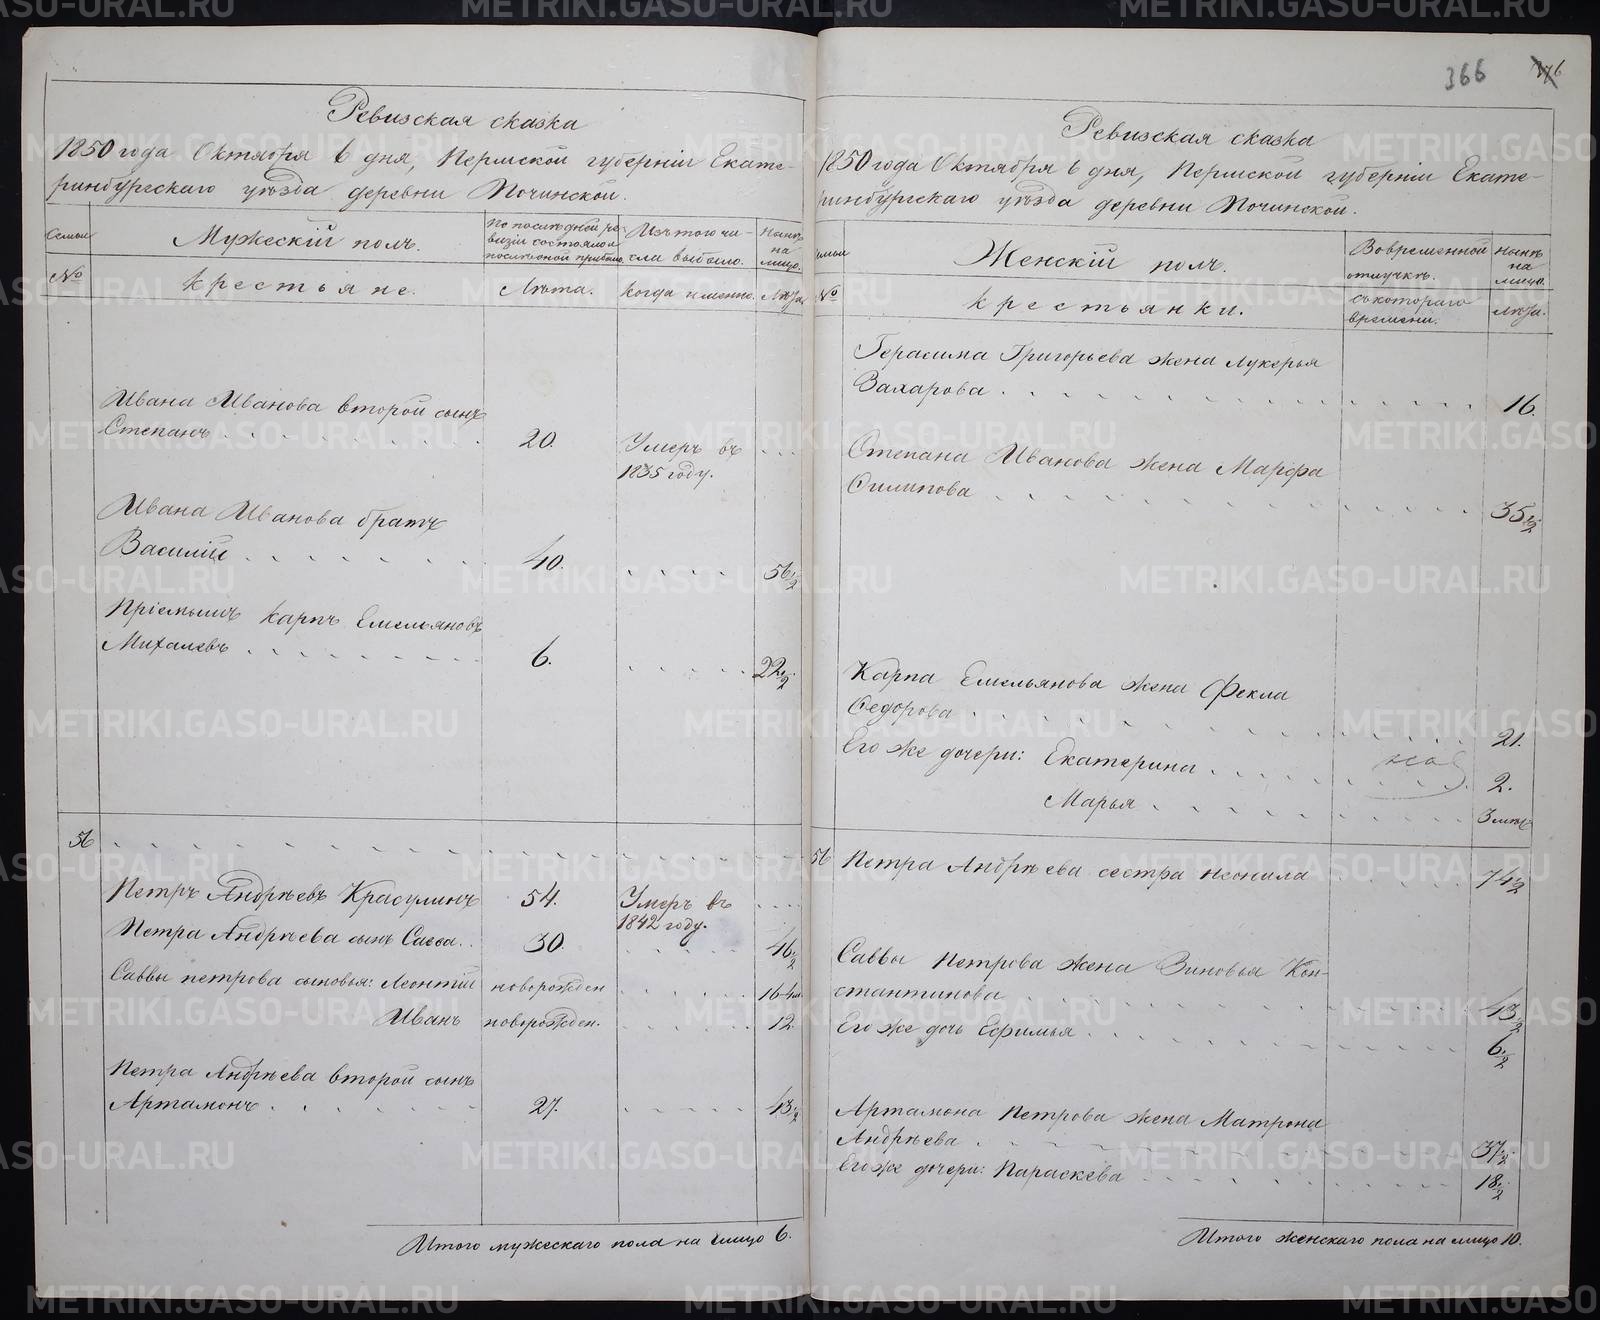 366
Ревизская сказка
1850 года Октября 6 дня, Пермской губерніи Екате-
ринбургскаго уѣзда деревни Починской.
Семьи
№
Мужескій полъ.
крестьяне.
По послѣдней ре-
визіи состояло и
послѣ оной прибыло.
Лѣта.
Изъ того чи-
сла выбыло.
Когда именно.
Нынѣ
на
лицо.
Лѣта.
Ивана Иванова второй сынъ
Степанъ . . . . . . . . 20. Умеръ въ . . .
1835 году.
Ивана Иванова братъ
Василій . . . . . . . . 40. . . . . . 56½
Пріемышъ Карпъ Емельяновъ
Михалевъ . . . . . . . . 6. . . . . . 22½
56
Петръ Андрѣевъ Красулинъ 54. Умеръ въ . . . .
1842 году.
Петра Андрѣева сынъ Савва . . 30. . . . . . 46½
Саввы петрова сыновья: Леонтій новорожден . . . . . 16
Иванъ новорожден. . . . . . 12
Петра Андрѣева второй сынъ
Артамонъ . . . . . . . 27. . . . . . 43½
Итого мужескаго пола на лицо 6.
Ревизская сказка
1850 года Октября 6 дня, Пермской губерніи Екате-
ринбургскаго уѣзда деревни Починской.
семьи
№
Женскій полъ.
крестьянки.
Во временной
отлучкѣ.
съ котораго
времени.
Нынѣ
на
лицо.
лѣта.
Герасима Григорьева жена Лукерья
Захарова . . . . . . . . . . . . 16.
Степана Иванова жена Марфа
Филипова . . . . . . . . . . . . 35½
Карпа Емельянова жена Фекла
Федорова . . . . . . . . . . . . 21.
Его же дочери: Екатерина . . . . . . . 2.
Марья . . . . . . . . 3
56 Петра Андрѣева сестра Неонила . . . . . 74½
Саввы Петрова жена Зиновья Кон-
стантинова . . . . . . . . . . . 43½
Его же дочь Ефимья . . . . . . . . . 6½
Артамона Петрова жена Матрона
Андрѣева . . . . . . . . . . . . 37½
Его же дочери: Параскева . . . . . . . 18½
Итого женскаго пола на лицо 10.
METRIKI.GASO-URAL.RU